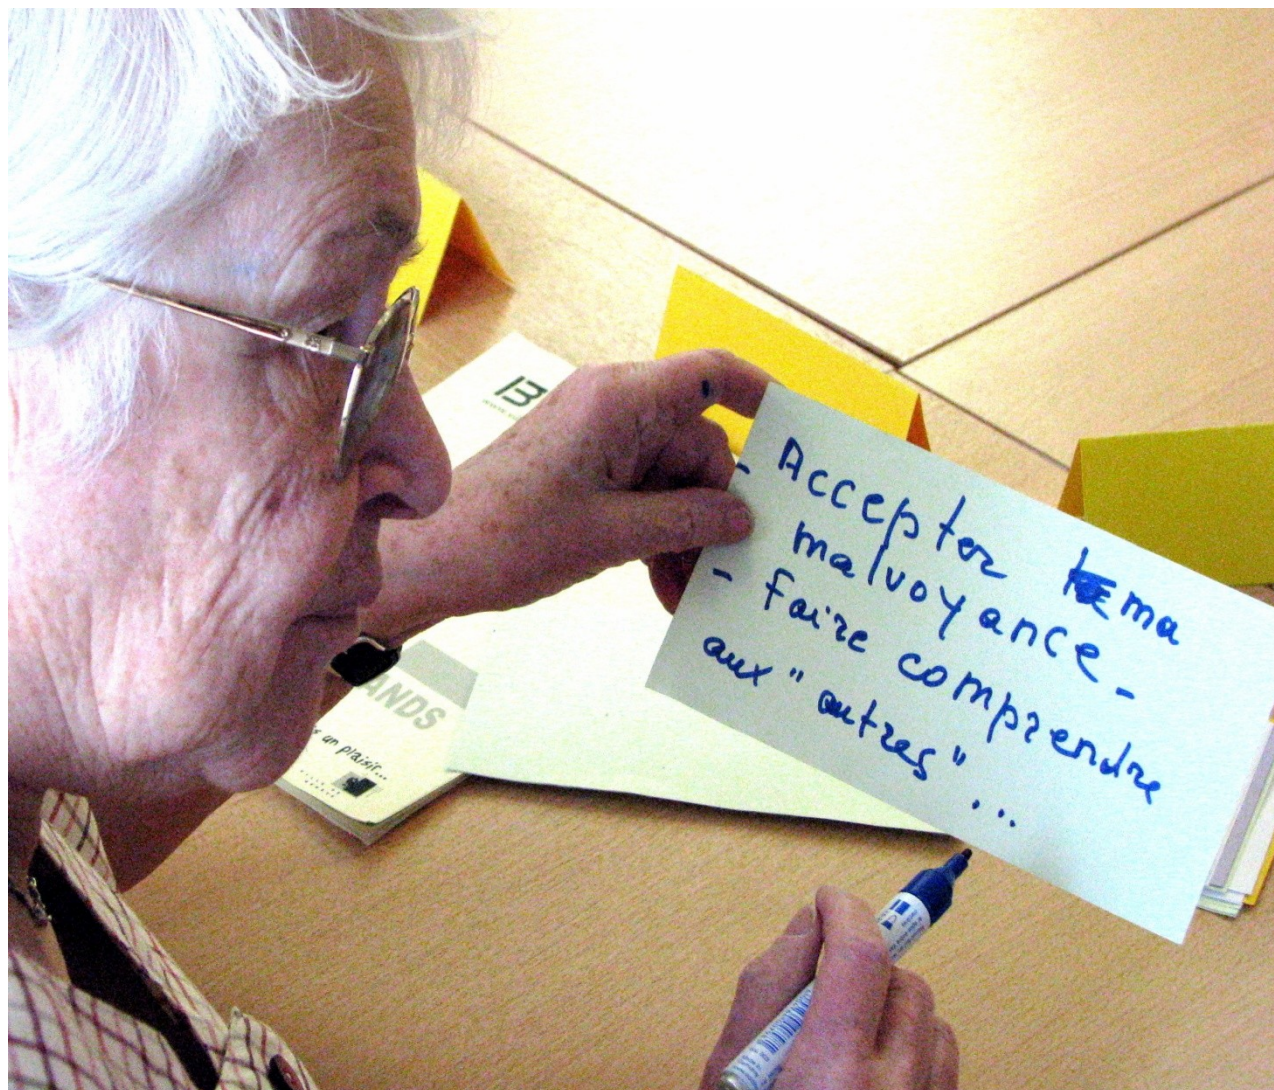 - Accepter ma
malvoyance -
- faire comprendre
aux "autres" ...
ANDS
un plaisir...